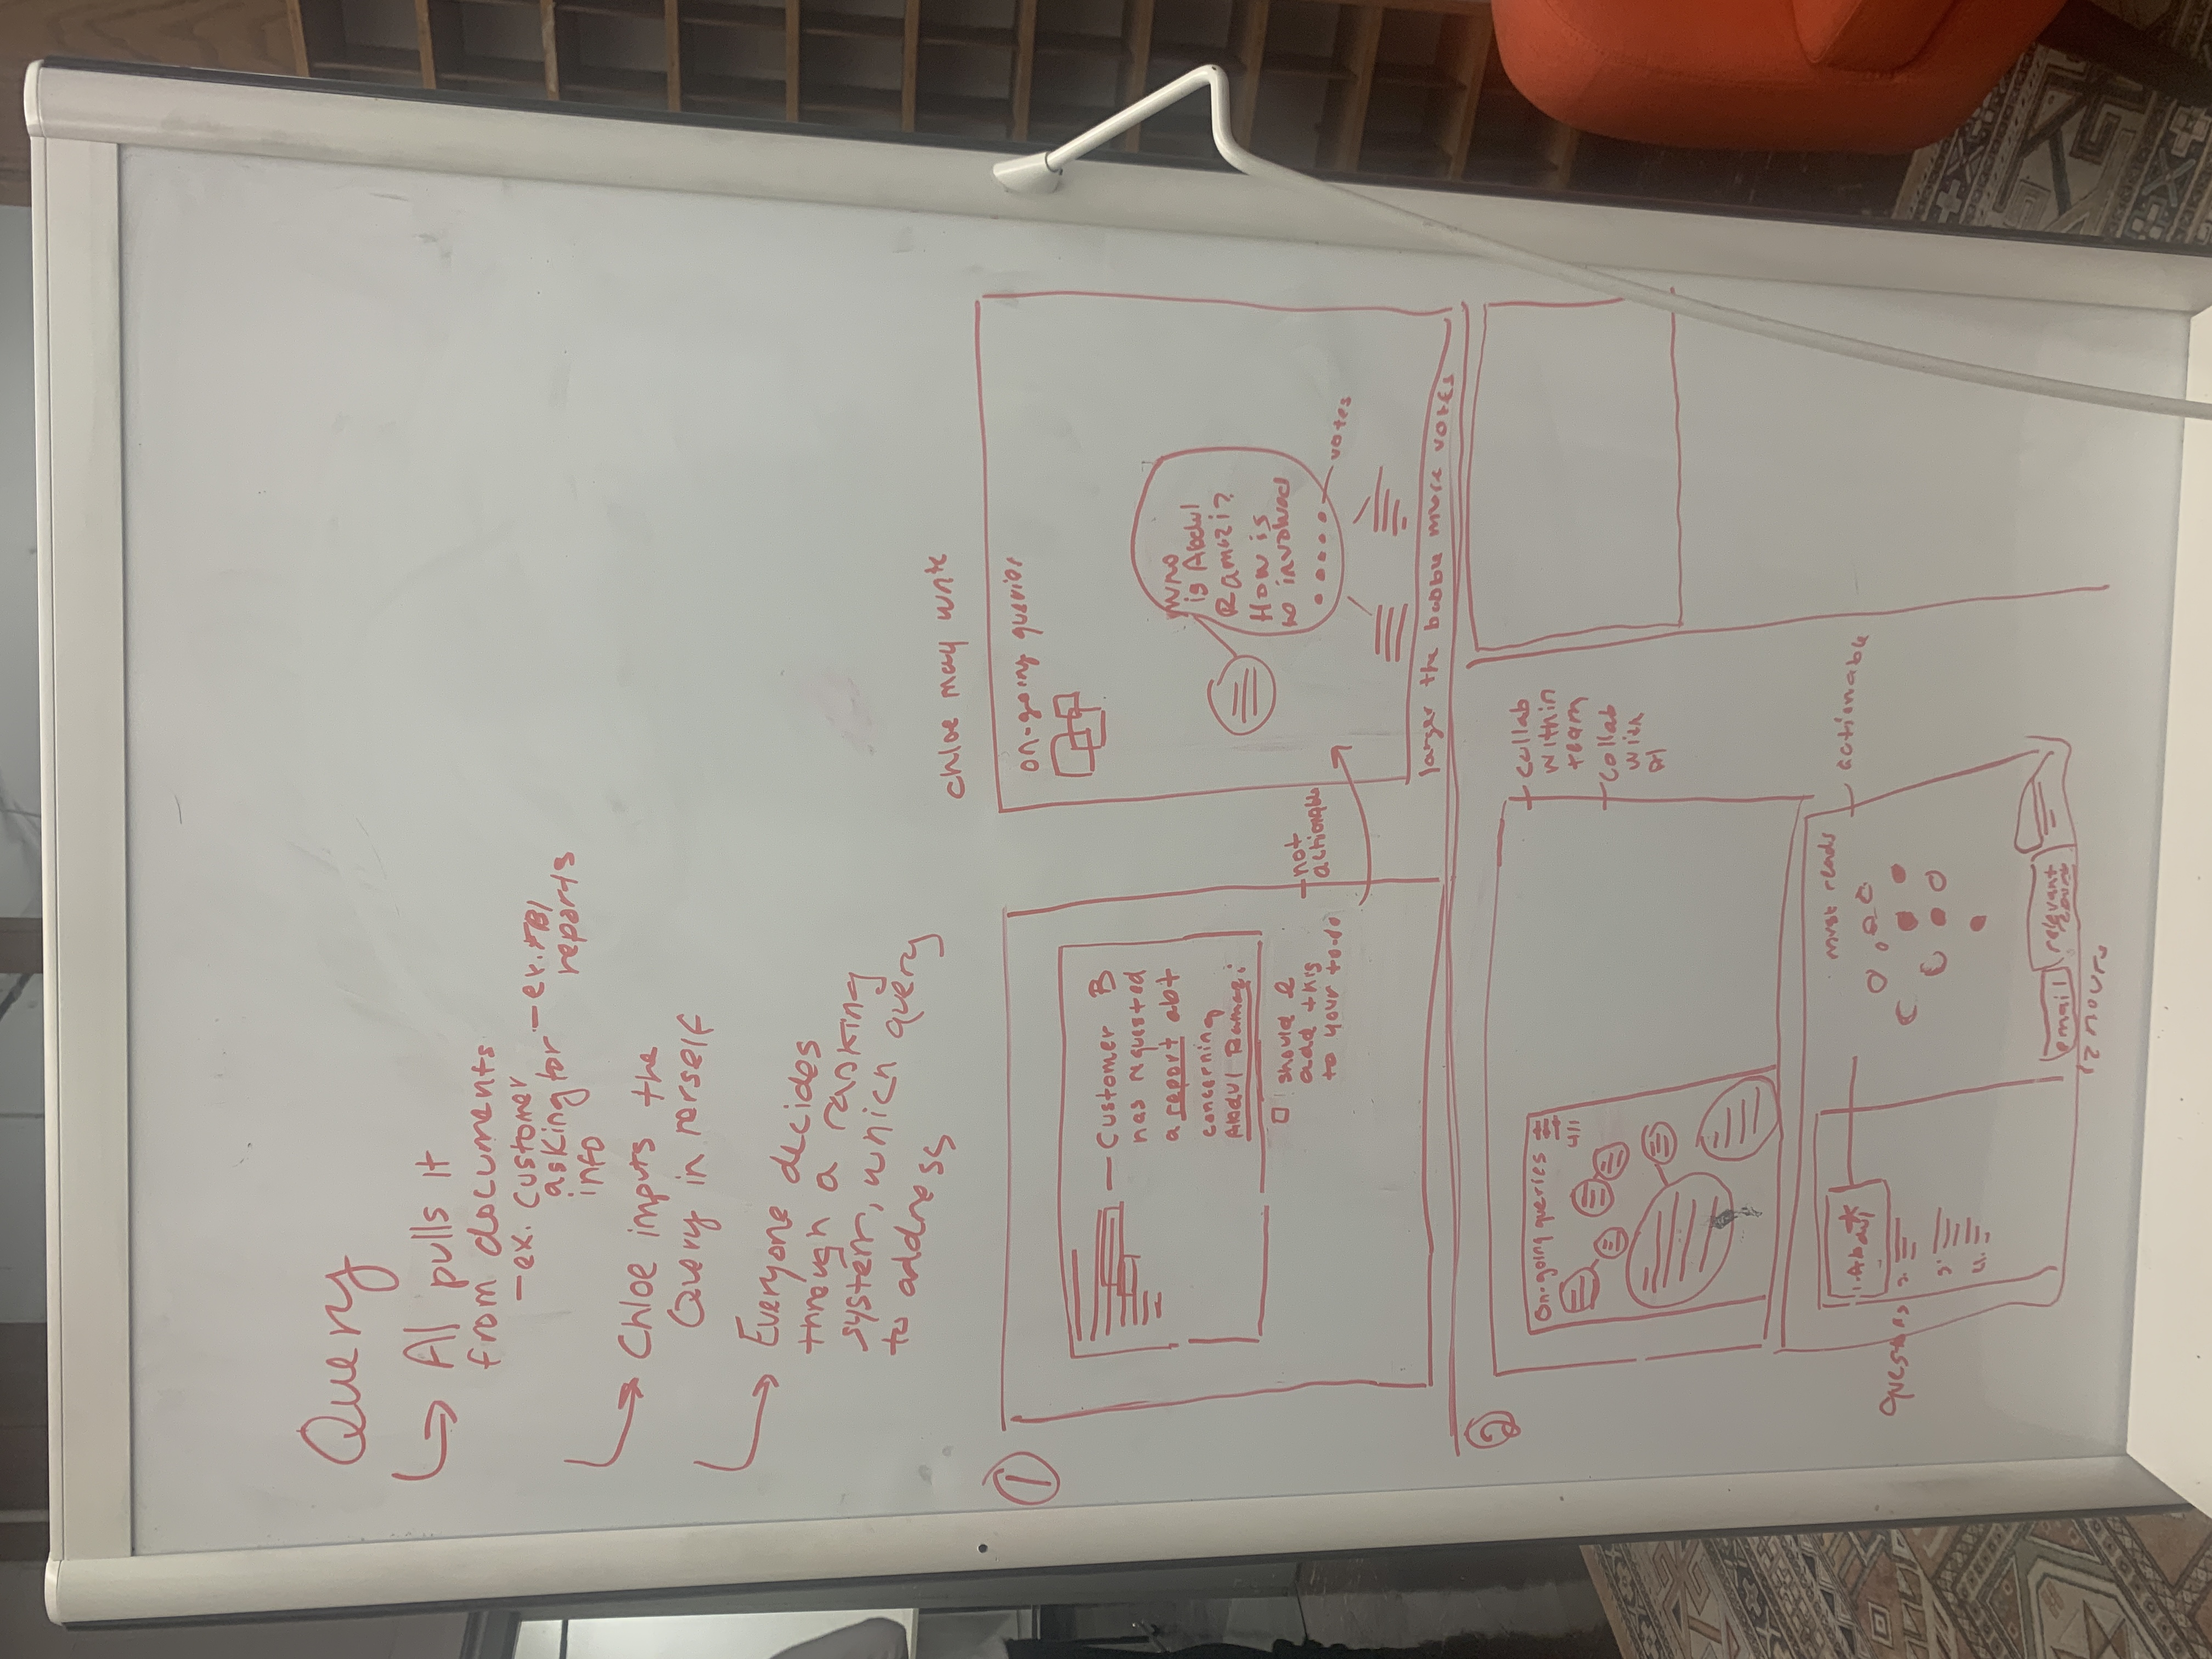 Query
AI pulls it
from documents
- ex. customer
asking for
info
- ex. FBI
reports
Chloe inputs the
Query in herself
Everyone decides
through a ranking
system, which query
to address
①
Customer B
has requested
a report abt
concerning
Abdul Ramazi
should I
add this
to your to-do
not
actionable
Chloe may write
on-going queries
who
is Abdul
Ramazi?
How is
involved
votes
larger the bubble more votes
②
On-going queries
4/1
collab
within
team
collab
with
AI
Questions
1. Abdul
2.
3.
4.
must reads
actionable
email
relevant
12 hours